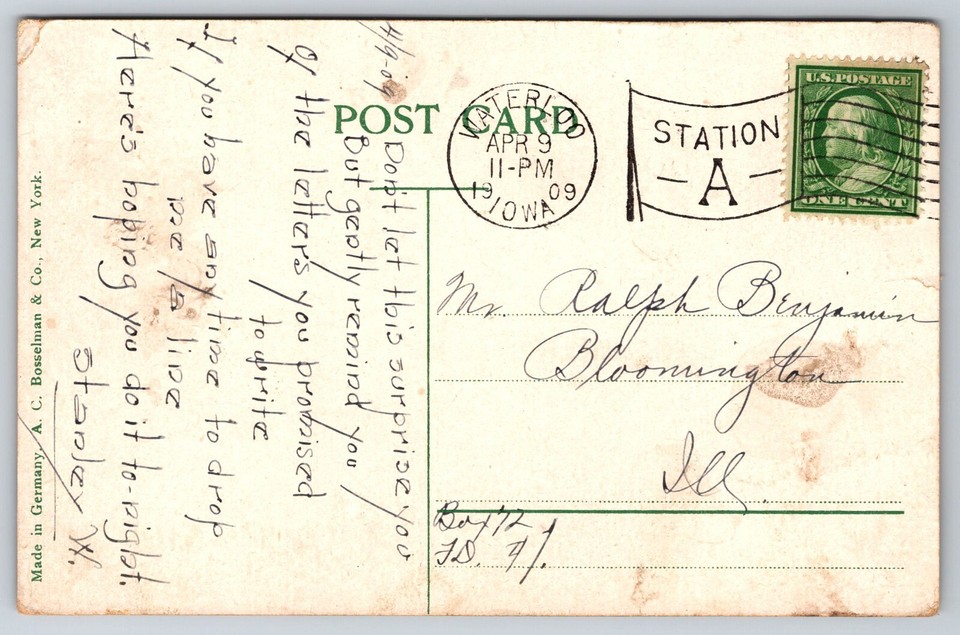 4/9-09
Don't let this surprise you
But gently remind you
Of the letters you promised
to write
If you have any time to drop
me a line
Here's hoping you do it to-night.
Stanley W.
POST CARD
WATERLOO
APR 9
11-PM
1909
IOWA
STATION
A
U.S. POSTAGE
ONE CENT
Mr. Ralph Benjamin
Bloomington
Ill
Box 72
Made in Germany, A. C. Bosselman & Co., New York.